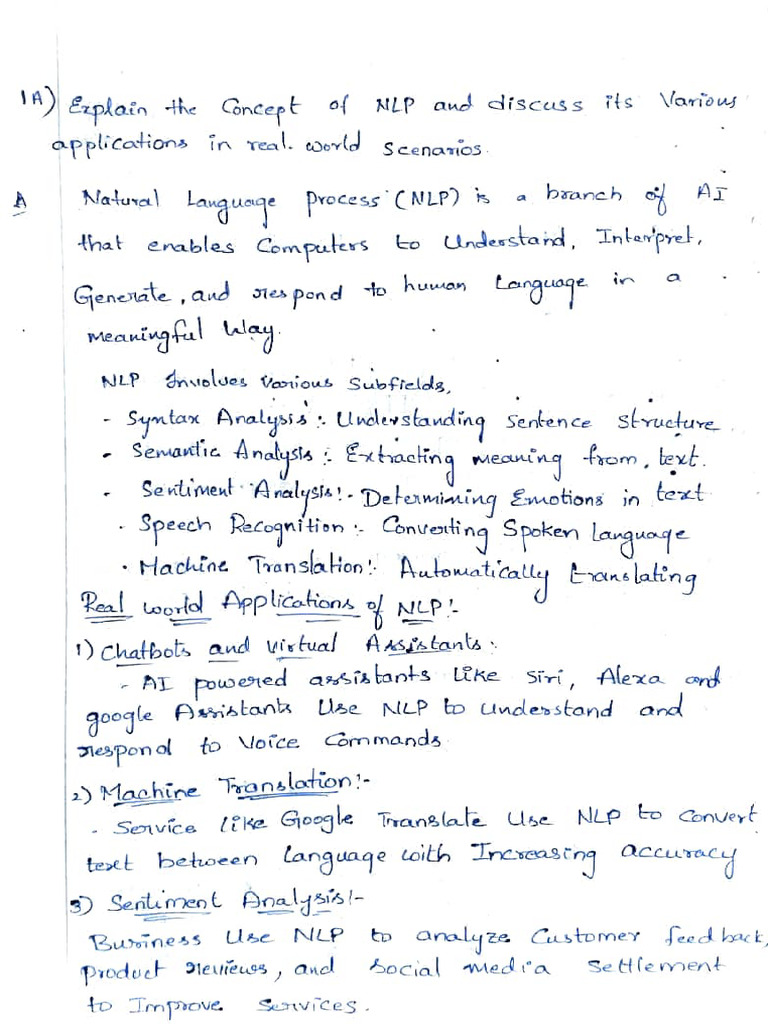 1A) Explain the Concept of NLP and discuss its Various
applications in real-world Scenarios.
A Natural Language Process (NLP) is a branch of AI
that enables Computers to Understand, Interpret,
Generate, and respond to human Language in a
Meaningful Way.
NLP Involves Various Subfields,
- Syntax Analysis :- Understanding Sentence Structure.
- Semantic Analysis :- Extracting meaning from text.
- Sentiment Analysis :- Determining Emotions in text
- Speech Recognition :- Converting Spoken Language
- Machine Translation :- Automatically translating
Real world Applications of NLP :-
1) Chatbots and Virtual Assistants :
- AI powered assistants like Siri, Alexa and
google Assistants Use NLP to Understand and
respond to Voice Commands
2) Machine Translation :-
- Service like Google Translate Use NLP to Convert
text between Language with Increasing accuracy
3) Sentiment Analysis :-
Business Use NLP to analyze Customer feedback,
product reviews, and Social Media Settlement
to Improve Services.